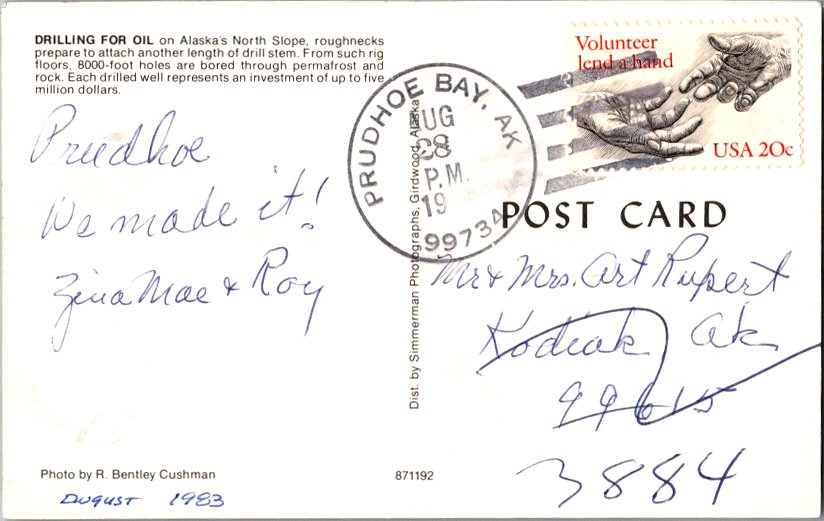 DRILLING FOR OIL on Alaska's North Slope, roughnecks
prepare to attach another length of drill stem. From such rig
floors, 8000-foot holes are bored through permafrost and
rock. Each drilled well represents an investment of up to five
million dollars.
Prudhoe
We made it!
Zina Mae & Roy
Photo by R. Bentley Cushman
August 1983
Dist. by Simmerman Photographs, Girdwood, Alaska
871192
PRUDHOE BAY, AK
AUG
28
P.M.
19
99734
Volunteer
lend a hand
USA 20c
POST CARD
Mr & Mrs. Art Rupert
Kodiak Ak
99615
3884